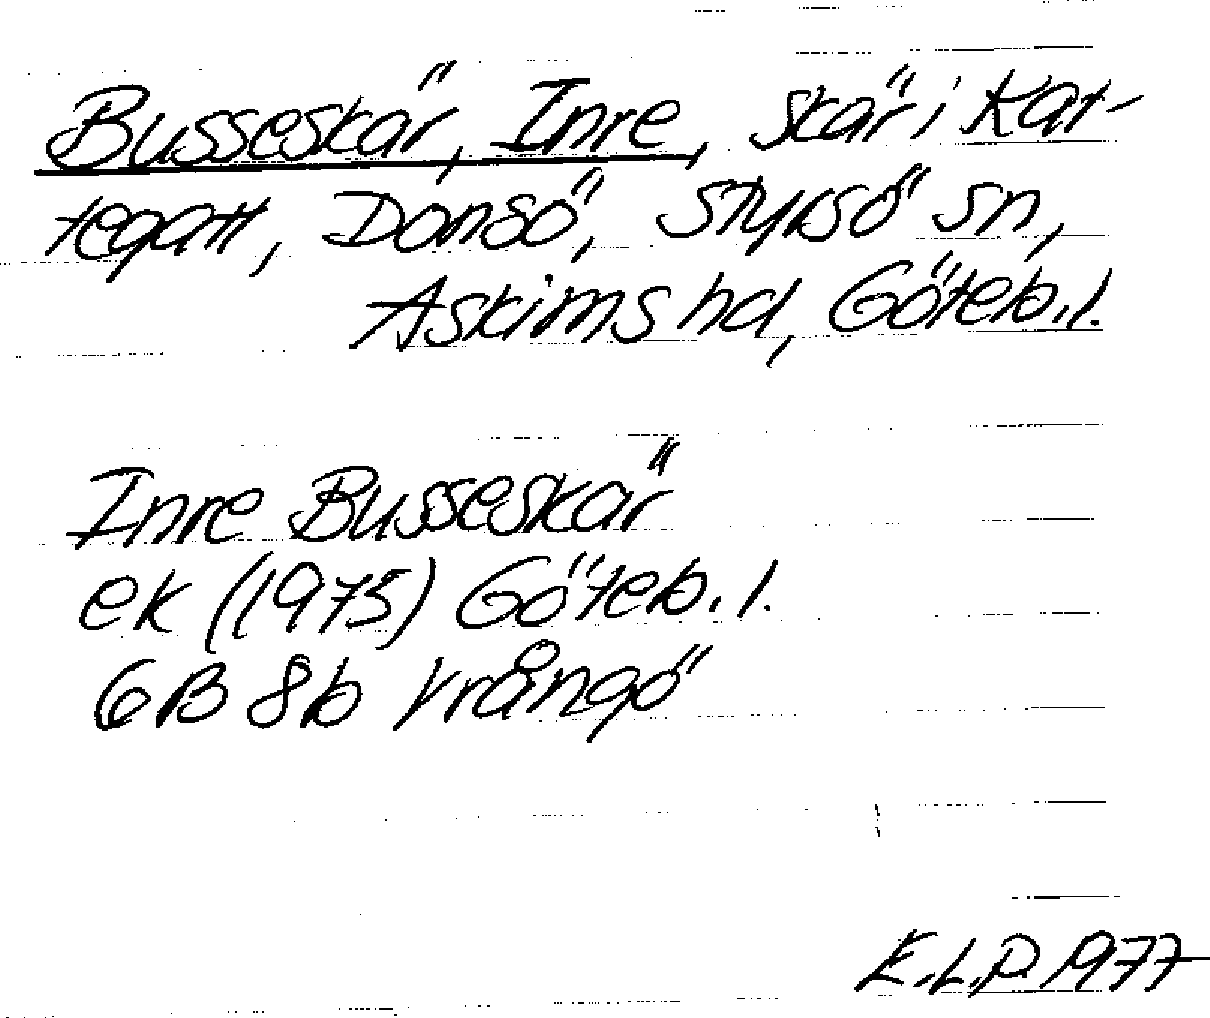 Busseskär, Inre, skär i Kat-
tegatt, Donsö, Styrsö sn,
Askims hd, Göteb. l.
Inre Busseskär
ek (1975) Göteb. l.
6B 8b Vrångö
K.L.P. 1977